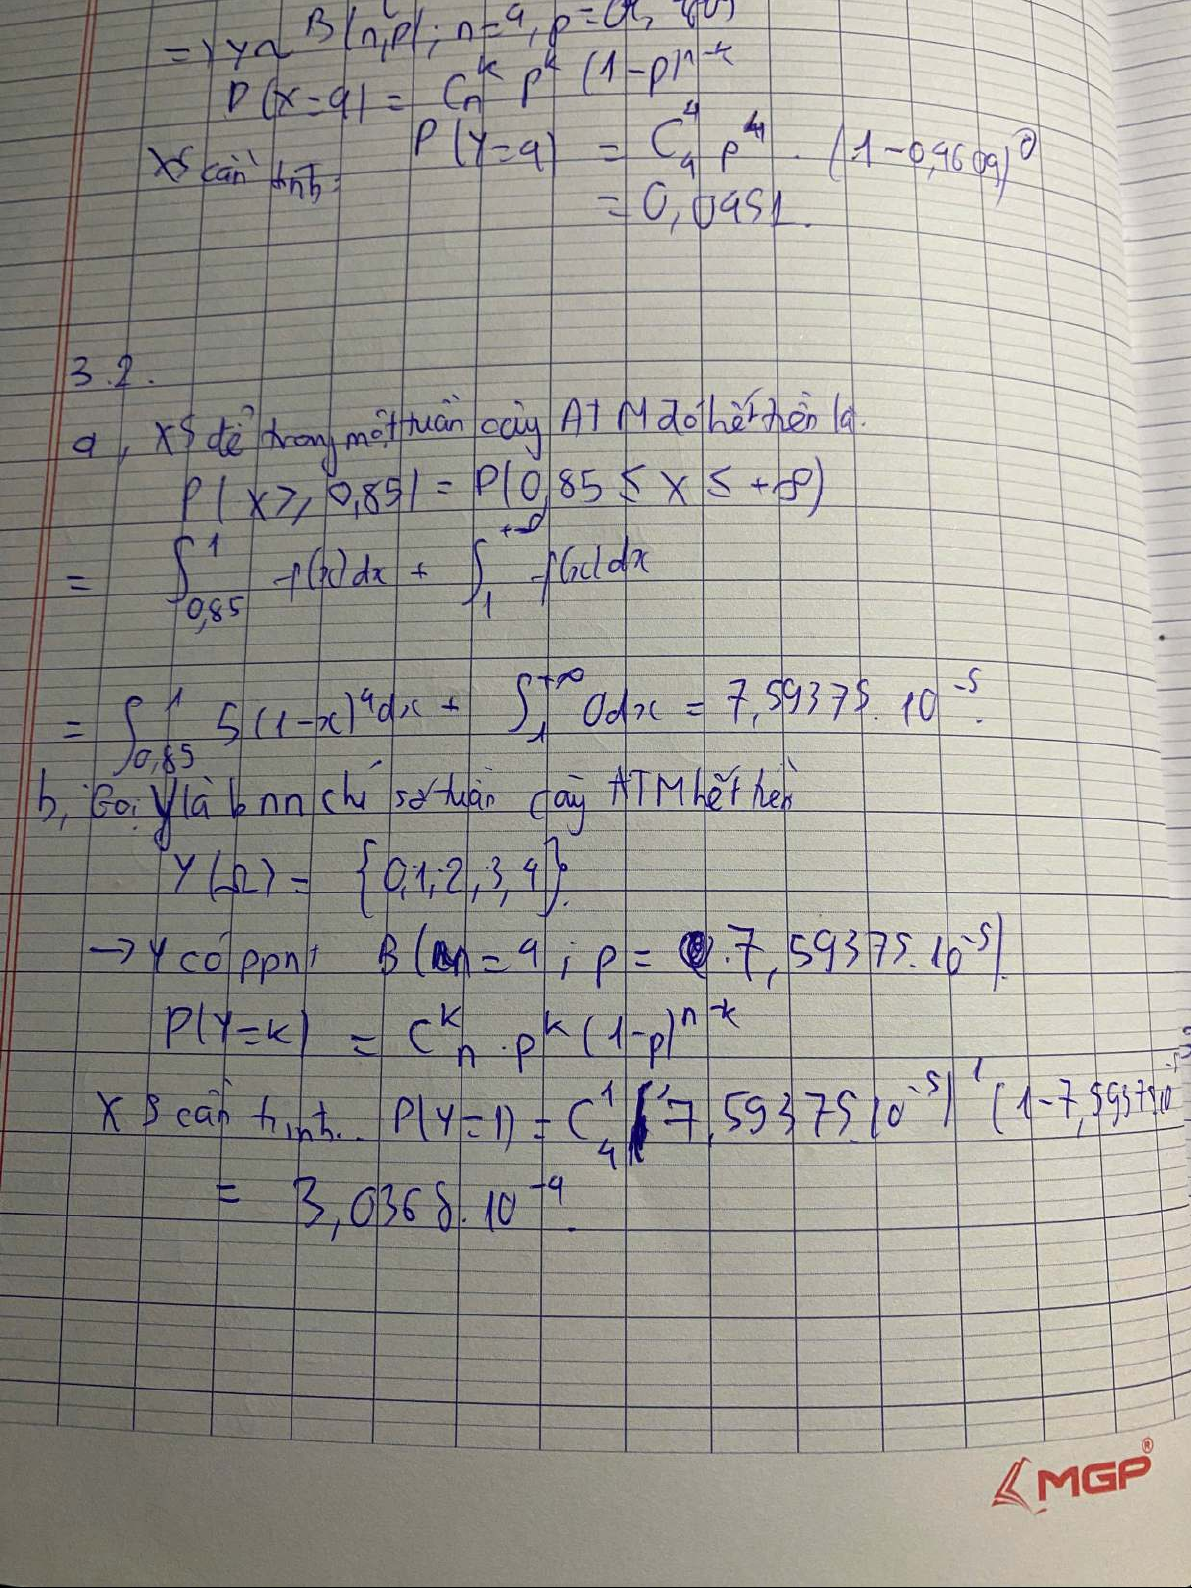 => Y ~ B(n,p); n=4, p=0,
P(X=9) = C_n^k p^k (1-p)^{n-k}
XS cần tính: P(Y=4) = C_4^4 p^4 . (1-0,4609)^0
= 0,0451.
3.2.
a, XS để trong một tuần cây ATM đó hết tiền là.
P(X ≥ 0,85) = P(0,85 ≤ X ≤ +∞)
= ∫_{0,85}^1 f(x)dx + ∫_1^{+∞} f(x)dx
= ∫_{0,85}^1 5(1-x)^4 dx + ∫_1^{+∞} 0dx = 7,59375.10^{-5}.
b, Gọi Y là bnn chỉ số tuần cây ATM hết tiền
Y(Ω) = {0,1,2,3,4}.
→ Y có ppnt B(n=4; p = 7,59375.10^{-5}).
P(Y=k) = C_n^k . p^k (1-p)^{n-k}
XS cần tính. P(Y=1) = C_4^1 (7,59375.10^{-5})^1 (1-7,59375.10^{-5}
= 3,0368.10^{-4}.
MGP®